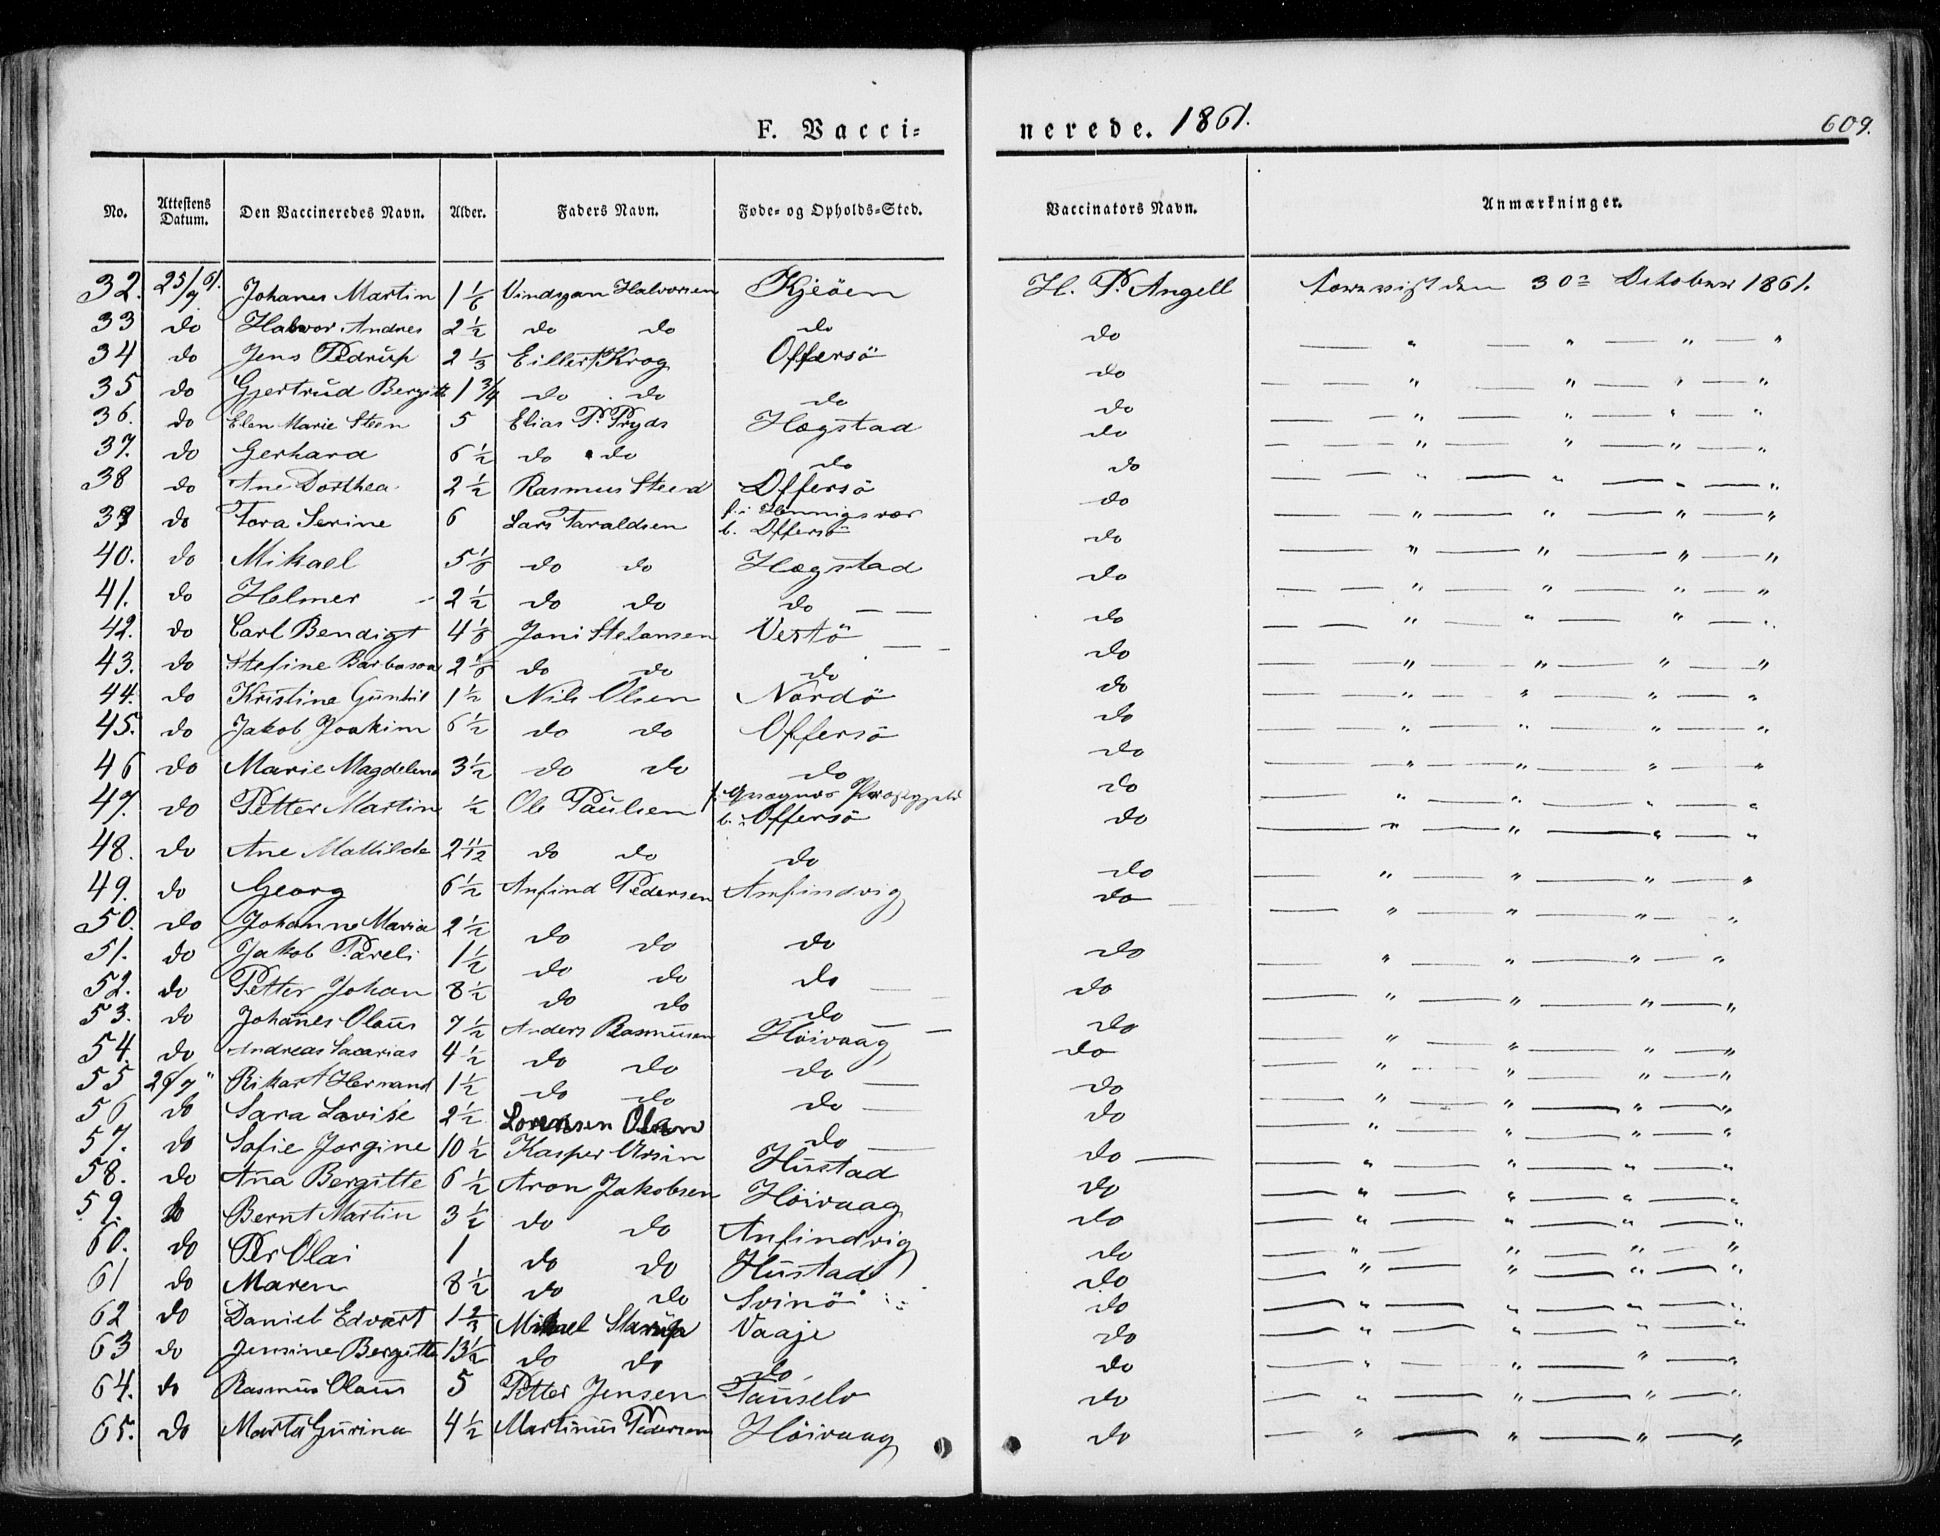 F. Vacci= nerede. 1861. 609.
No. Attestens Datum. Den Vaccineredes Navn. Alder. Faders Navn. Føde- og Opholds-Sted. Vaccinators Navn. Anmærkninger.
32. 25/9 61. Johanes Martin 1 1/6 Halvorsen Kjeöen H. P. Angell den 30 October 1861.
33 do Halvor Andres 2 1/2 do do do do — " — " — " — "
34 do Jens Pedrup 2 1/3 Eillert Krog Offersö do — — " — " — " — "
35 do Gjertrud Bergitte 1 3/4 do do do do — — " — " — " — "
36. do Elen Marie Steen 5 Elias P. Pryds Hægstad do — — " — " — " — "
37. do Gerhard 6 1/2 do do do do — — " — " — " — "
38 do Ane Dorthea 2 1/2 Rasmus Steen Offersö do — — " — " — " — "
39 do Tora Serine 6 Lars Taraldsen f. i Henningsvær b. Offersö do — " — " — " — "
40. do Mikael 5 1/6 do do Hægstad do — — " — " — " — "
41. do Helmer 2 1/2 do do do — — do — — " — " — " — "
42. do Carl Bendigt 4 1/6 Joni Stefansen Vestö do — — " — " — " — "
43. do Stefine 2 1/6 do do do do — — " — " — " — "
44. do Kristine Gunhil 1 1/2 Nils Olsen Nordö do — — " — " — " — "
45. do Jakob Joakim 6 1/2 do do Offersö do — — " — " — " — "
46 do Marie Magdelena 3 1/2 do do do do — — " — " — " — "
47. do Petter Martin 1/2 Ole Paulsen f. b. Offersö do — — " — " — " — "
48. do Ane Mathilde 2 11/12 do do do do — — " — " — " — "
49. do Georg 6 1/2 Anfind Pedersen Anfindvig do — — " — " — " — "
50. do Johanne Maria 2 1/2 do do do do — — " — " — " — "
51. do Jakob Pareli 1 1/2 do do do do — — " — " — " — "
52. do Petter Johan 8 1/2 do do do do — — " — " — " — "
53. do Johanes Olaus 7 1/2 Anders Rasmusen Höivaag do — — " — " — " — "
54. do Andreas Sacarias 4 1/2 do do do do — — " — " — " — "
55 26/9 " Rikart Hernand 1 1/2 do do do do — — " — " — " — "
56 do Sara Lovise 2 1/2 Lorensen Olsen do do — — " — " — " — "
57. do Sofie Jorgine 10 1/2 Kasper Ursin Hustad do — — — " — " — " — "
58. do Ana Bergitte 6 1/2 Aron Jakobsen Höivaag do — — " — " — " — "
59. do Bernt Martin 3 1/2 do do Anfindvig do — — " — " — " — "
60. do Per Olai 1 do do Hustad do — — " — " — " — "
61 do Maren 8 1/2 do do Svinö do — — " — " — " — "
62 do Daniel Edvart 1 2/3 Mikael Vaaje do — — " — " — " — "
63 do Jensine Bergitte 13 1/2 do do do do — — " — " — " — "
64. do Rasmus Olaus 5 Petter Jensen do — — " — " — " — "
65. do Marta Gurina 4 1/2 Martinus Pedersen Höivaag do — " — " — " — "